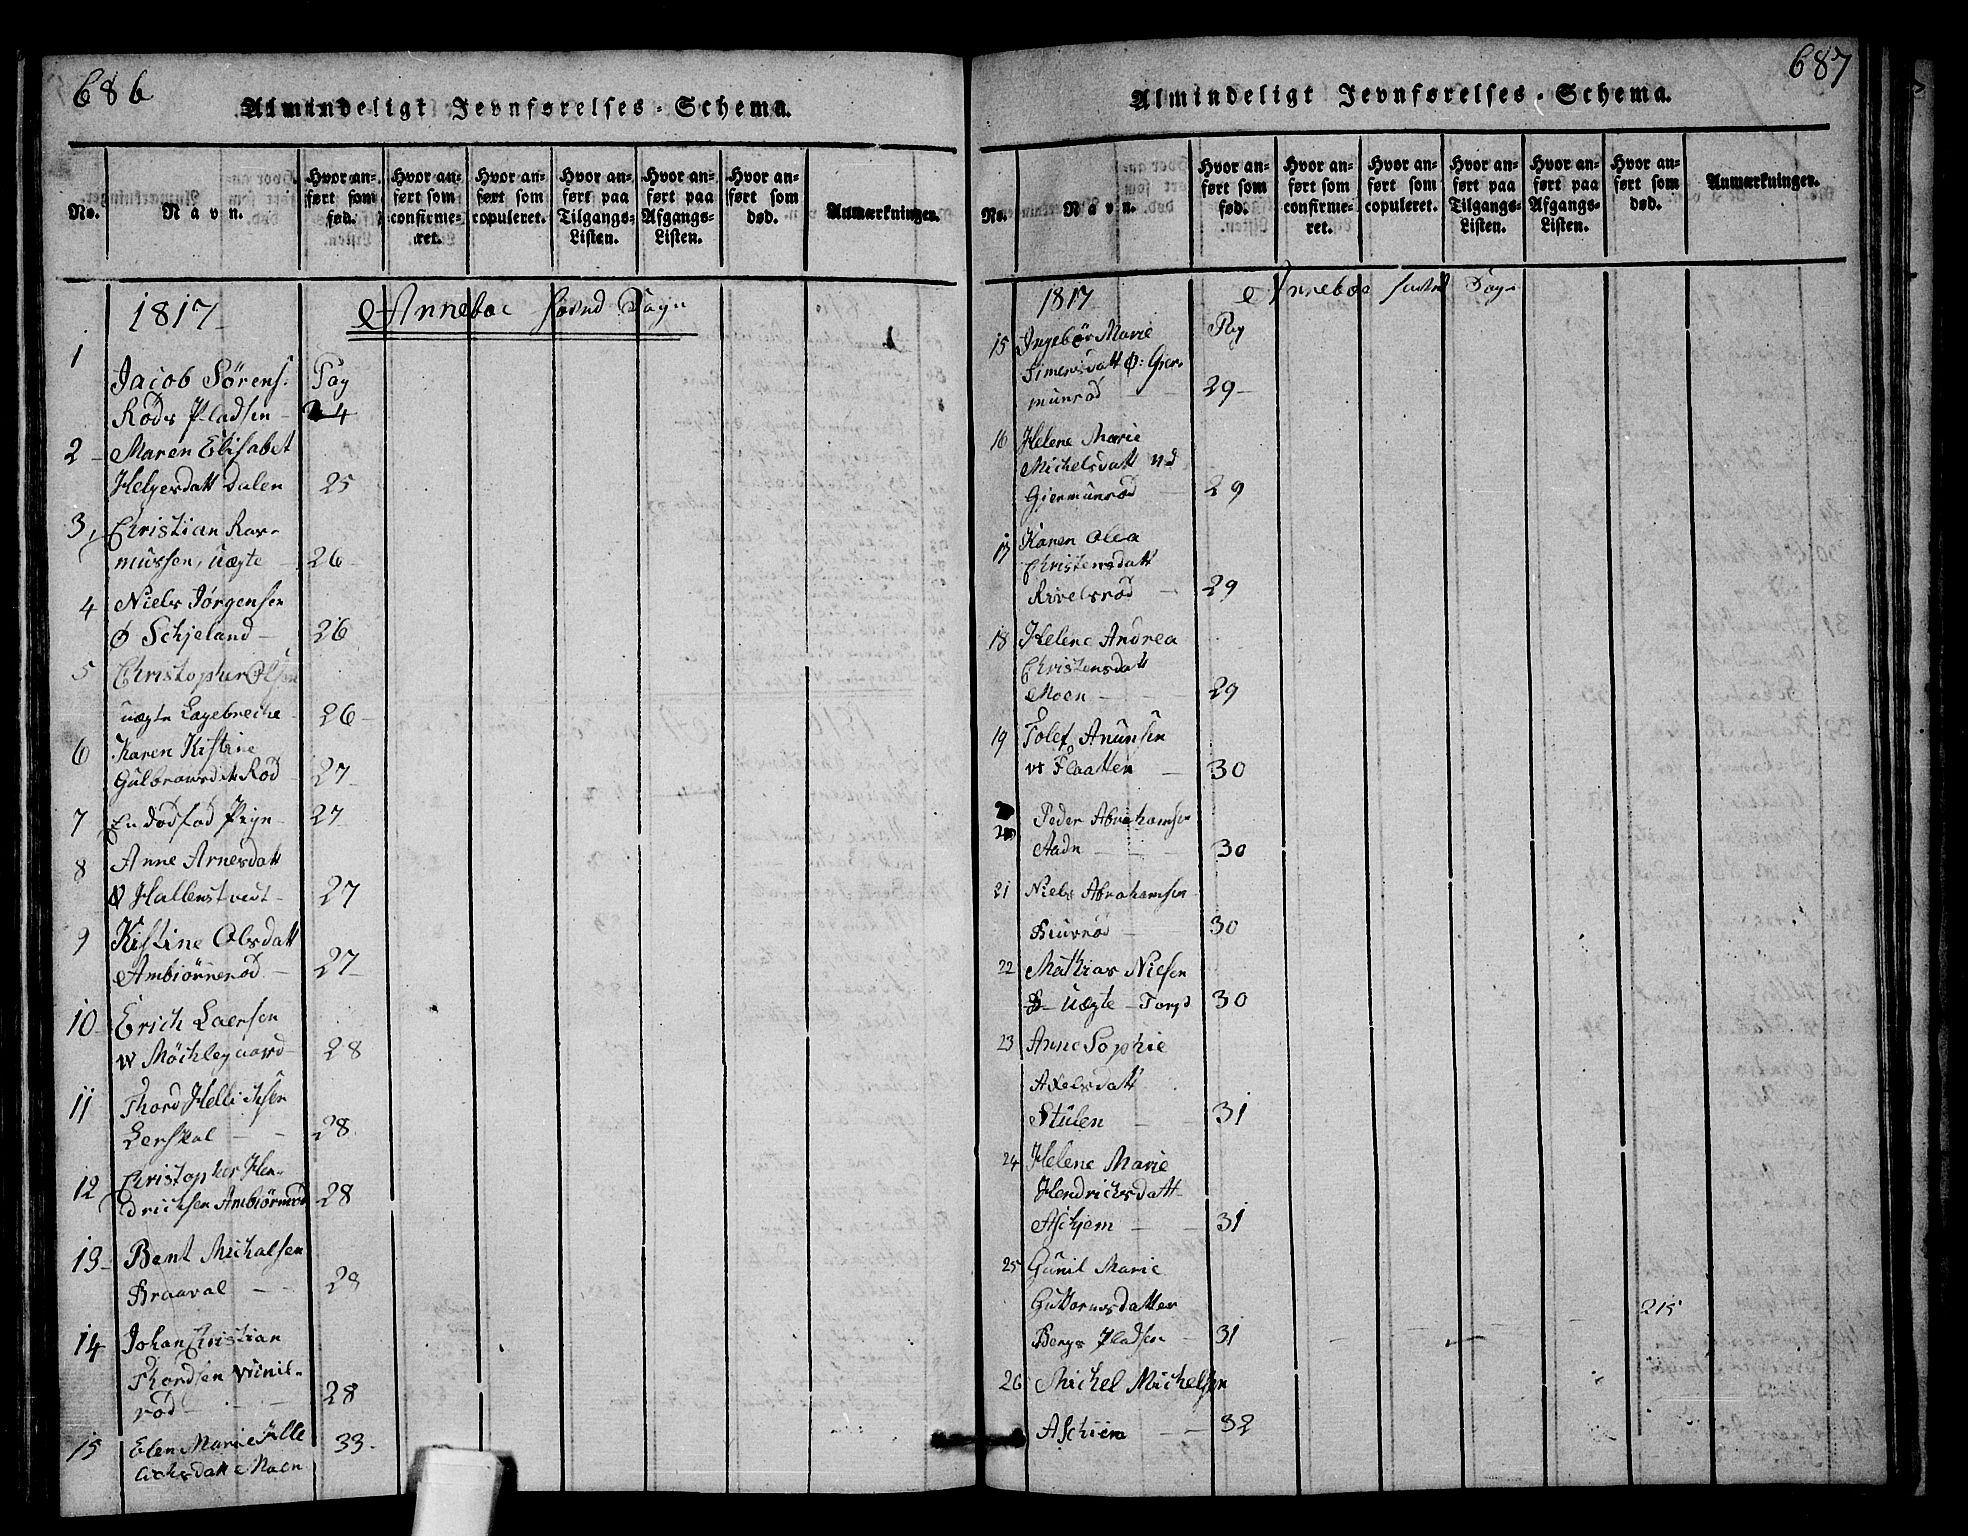 686
Almindeligt Jevnførelses-Schema.
No.
Navn.
Hvor an-
ført som
fød.
Hvor an-
ført som
confirme-
ret.
Hvor an-
ført som
copuleret.
Hvor an-
ført paa
Tilgangs-
Listen.
Hvor an-
ført paa
Afgangs-
Listen.
Hvor an-
ført som
død.
Anmærkninger.
1817 Anneboe Sogn
1 Jacob Sørens. Pag
Røds Pladsen - 24
2 Maren Elisabet
Helgesdatt Dalen 25
3 Christian Ras-
mussen, uægte - 26
4 Niels Jørgensen
Ø Schjeland - 26
5 Christopher Olsen
uægte 26
6 Karen Kistine
Gulbransdt Rød 27
7 En dødfød Pign 27
8 Anne Arnesdatt
Hallenstvedt - 27
9 Kistine Olsdatt
Ambiørnerød - 27
10 Erich Laersen
Møchlegaard 28
11 Thord Hellichsen
Lerskal - 28
12 Christopher Hen-
drichsen Ambiørnrød 28
13 Bent Michalsen
Braaval - 28
14 Johan Christian
Thordsen Winil-
rød 28
15 Elen Marie
Moen 33
687
Almindeligt Jevnførelses-Schema.
No.
Navn.
Hvor an-
ført som
fød.
Hvor an-
ført som
confirme-
ret.
Hvor an-
ført som
copuleret.
Hvor an-
ført paa
Tilgangs-
Listen.
Hvor an-
ført paa
Afgangs-
Listen.
Hvor an-
ført som
død.
Anmærkninger.
1817 Anneboe
15 Ingebør Marie Pag
Simensdatt Ø: Gier-
munrød 29
16 Helene Marie
Michelsdatt nd
Gjermunrød 29
17 Karen Olea
Christensdatt
Rivelsrød 29
18 Helene Andrea
Christensdatt
Moen 29
19 Tolef Anunsen
Flaatten 30
20 Peder Abrahamsen
30
21 Niels Abrahamsen
30
22 Mathias Nielsen
uægte - 30
23 Anne Sophie
Axelsdatt
Stulen 31
24 Helene Marie
Hendrichsdatt
Aschjem 31
25 Gunil Marie
Guttormsdatter 215
Bergs Pladsen - 31
26 Michel Michelsen
Aschiem 32